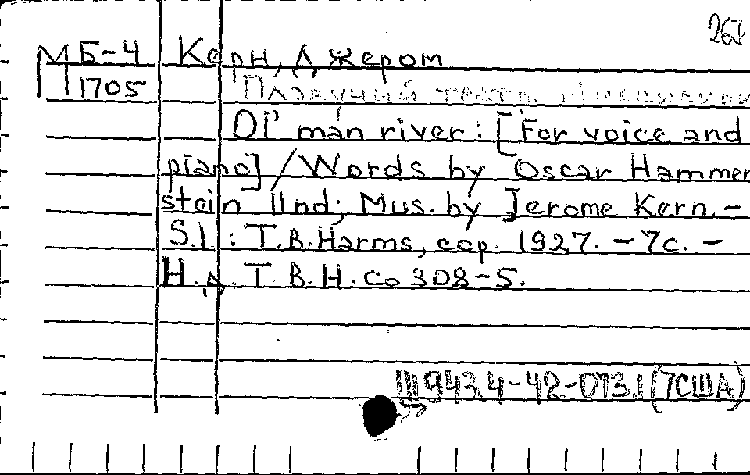 262
МБ-4 Керн, Джером
П 1705 Плавучий театр.
Ol' man river: [For voice and
piano] / Words by Oscar Hammer
stein IInd; Mus. by Jerome Kern. –
S.l.: T.B. Harms, cop. 1927. – 7с. –
Н.д. T.B.H. Co 308-5.
Щ943.4-42-073.1(7США)